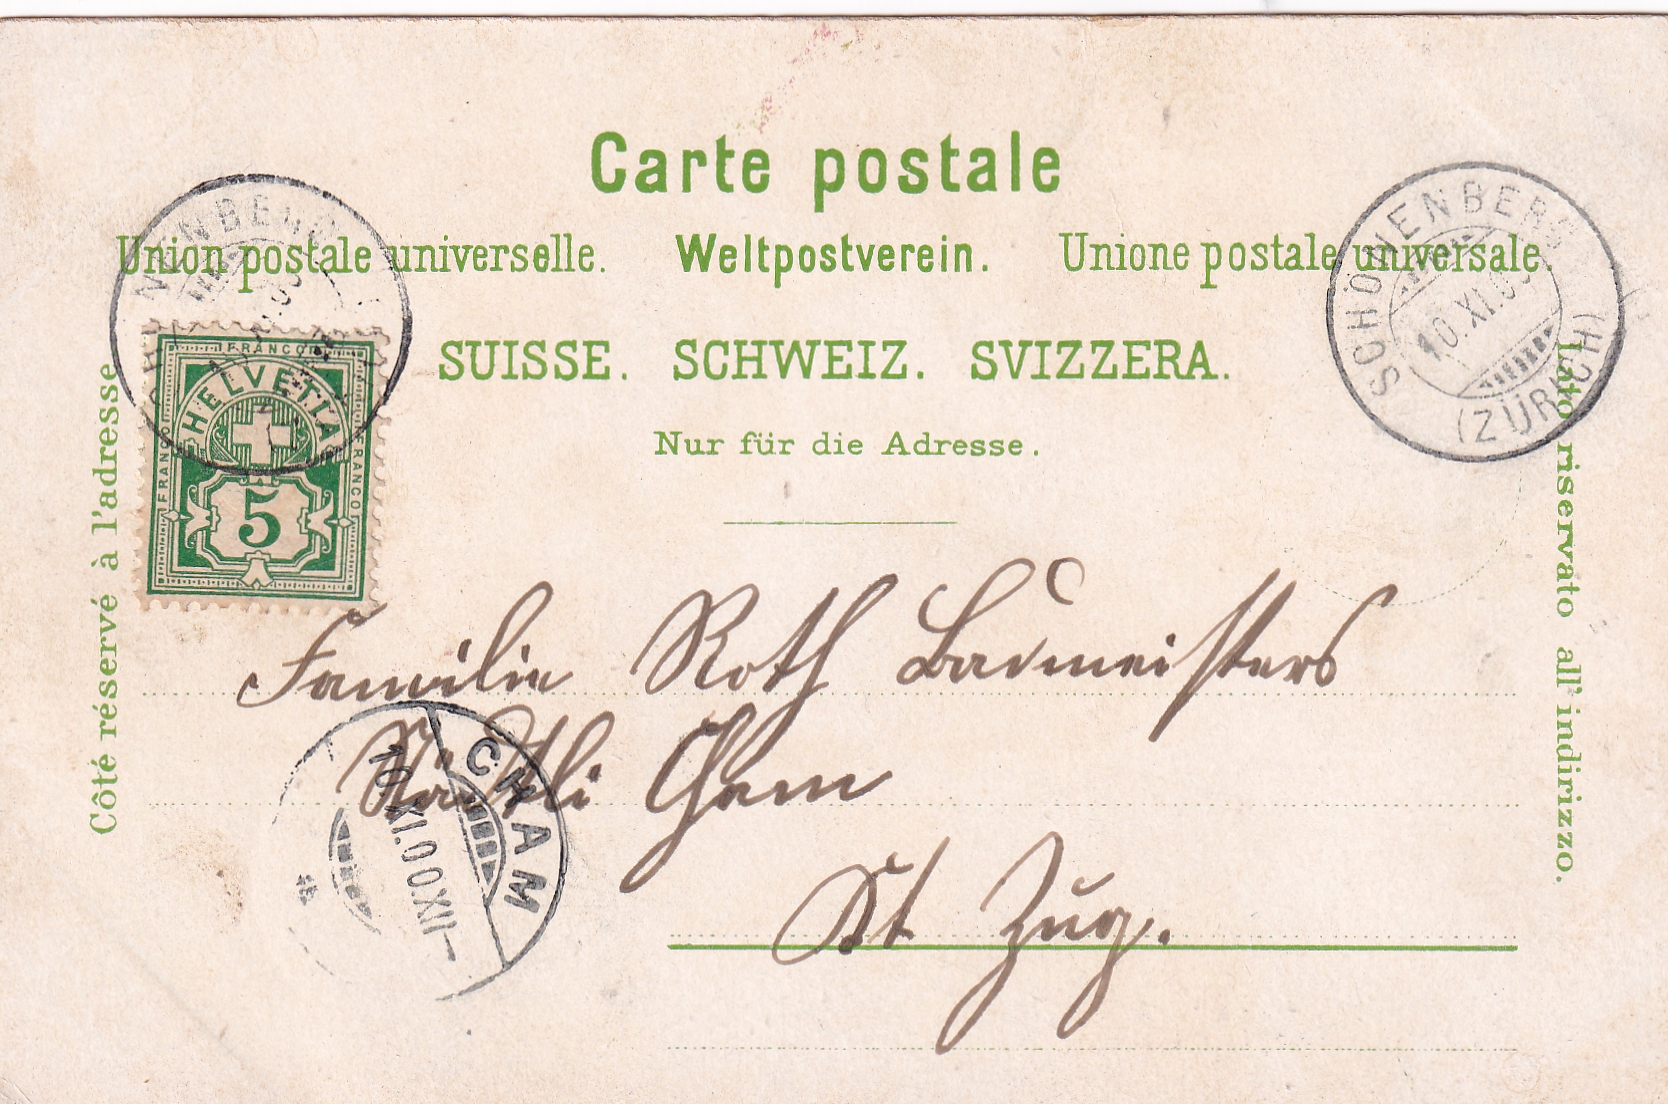 Carte postale
Union postale universelle. Weltpostverein. Unione postale universale.
SUISSE. SCHWEIZ. SVIZZERA.
Nur für die Adresse.
Côté réservé à l'adresse
Lato riservato all'indirizzo.
NENBERG
FRANCO
FRANCO
FRANCO
HELVETIA
5
SCHÖNENBERG
10.XI.00
(ZÜRICH)
Familie Roth Baumeisters
Städtli Cham
Kt Zug.
CHAM
10.XI.00.XII